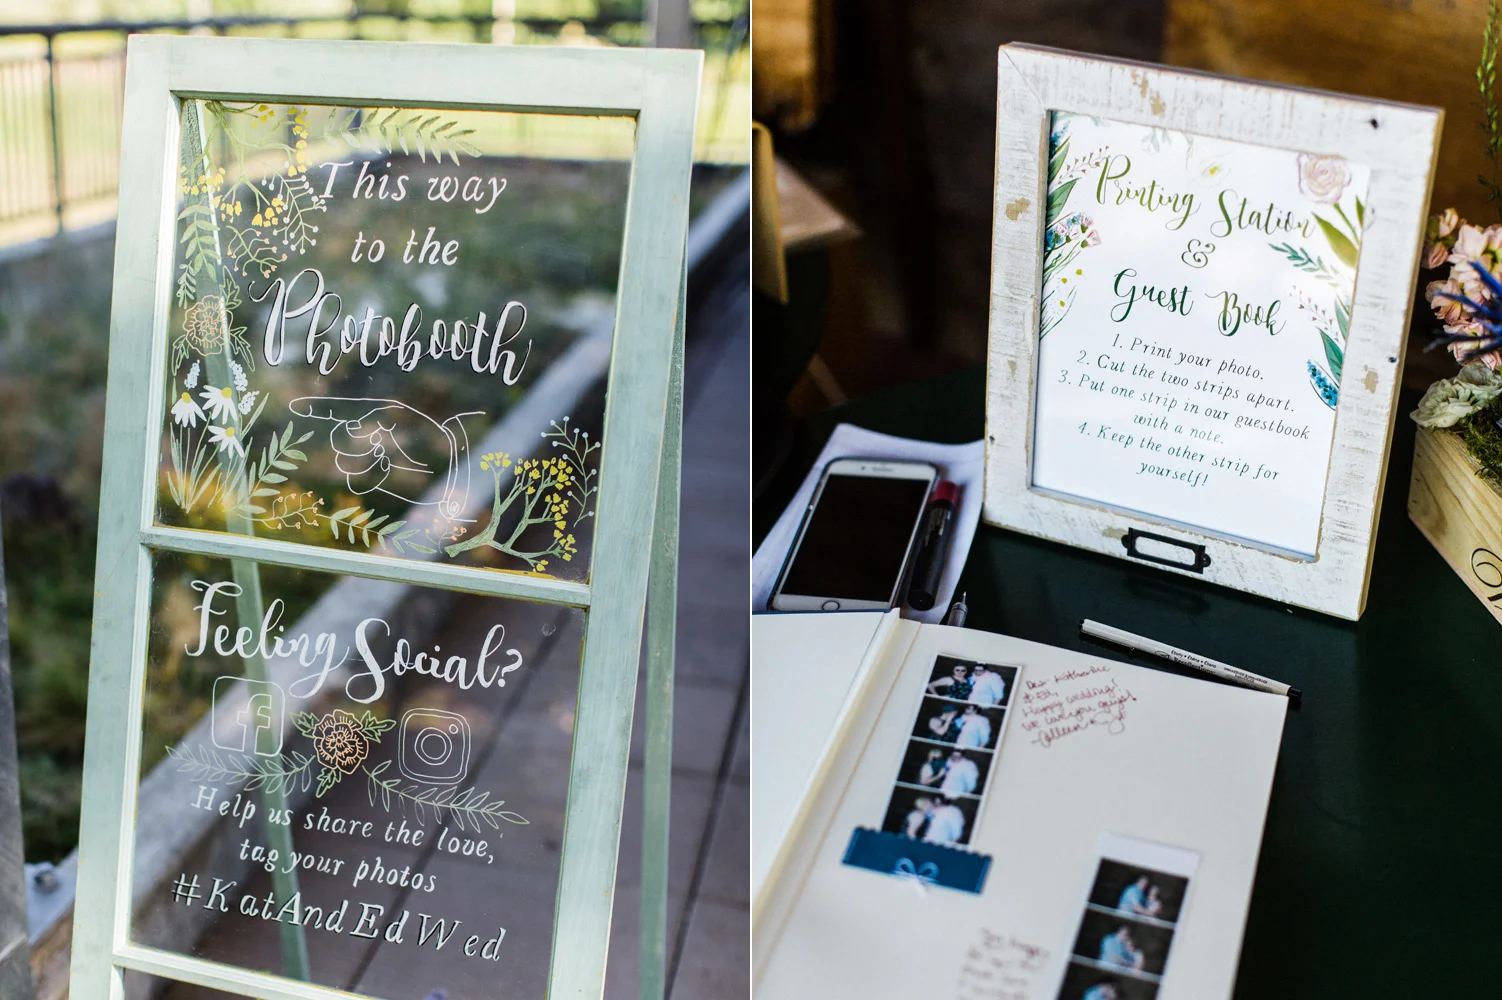 This way
to the
Photobooth
Feeling Social?
Help us share the love,
tag your photos
#KatAndEdWed
Printing Station
&
Guest Book
1. Print your photo.
2. Cut the two strips apart.
3. Put one strip in our guestbook
with a note.
4. Keep the other strip for
yourself!
Dear Katherine
& Ed,
Happy wedding!
We love you guys!